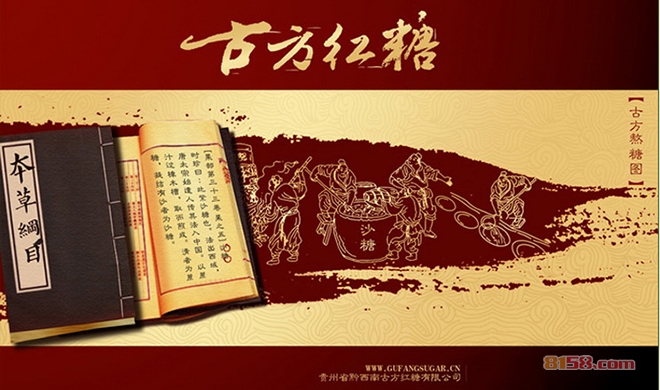 古方红糖
【古方熬糖图】
本草綱目
[果部第三十三卷果之五]沙糖
时珍曰：此紫沙糖也。法出西域，
唐太宗始遣人传其法入中国。以蔗
汁过樟木槽，取而煎成，清者为蔗
糖，凝结有沙者为沙糖。
沙糖
WWW.GUFANGSUGAR.CN
贵州省黔西南古方红糖有限公司
8158.com